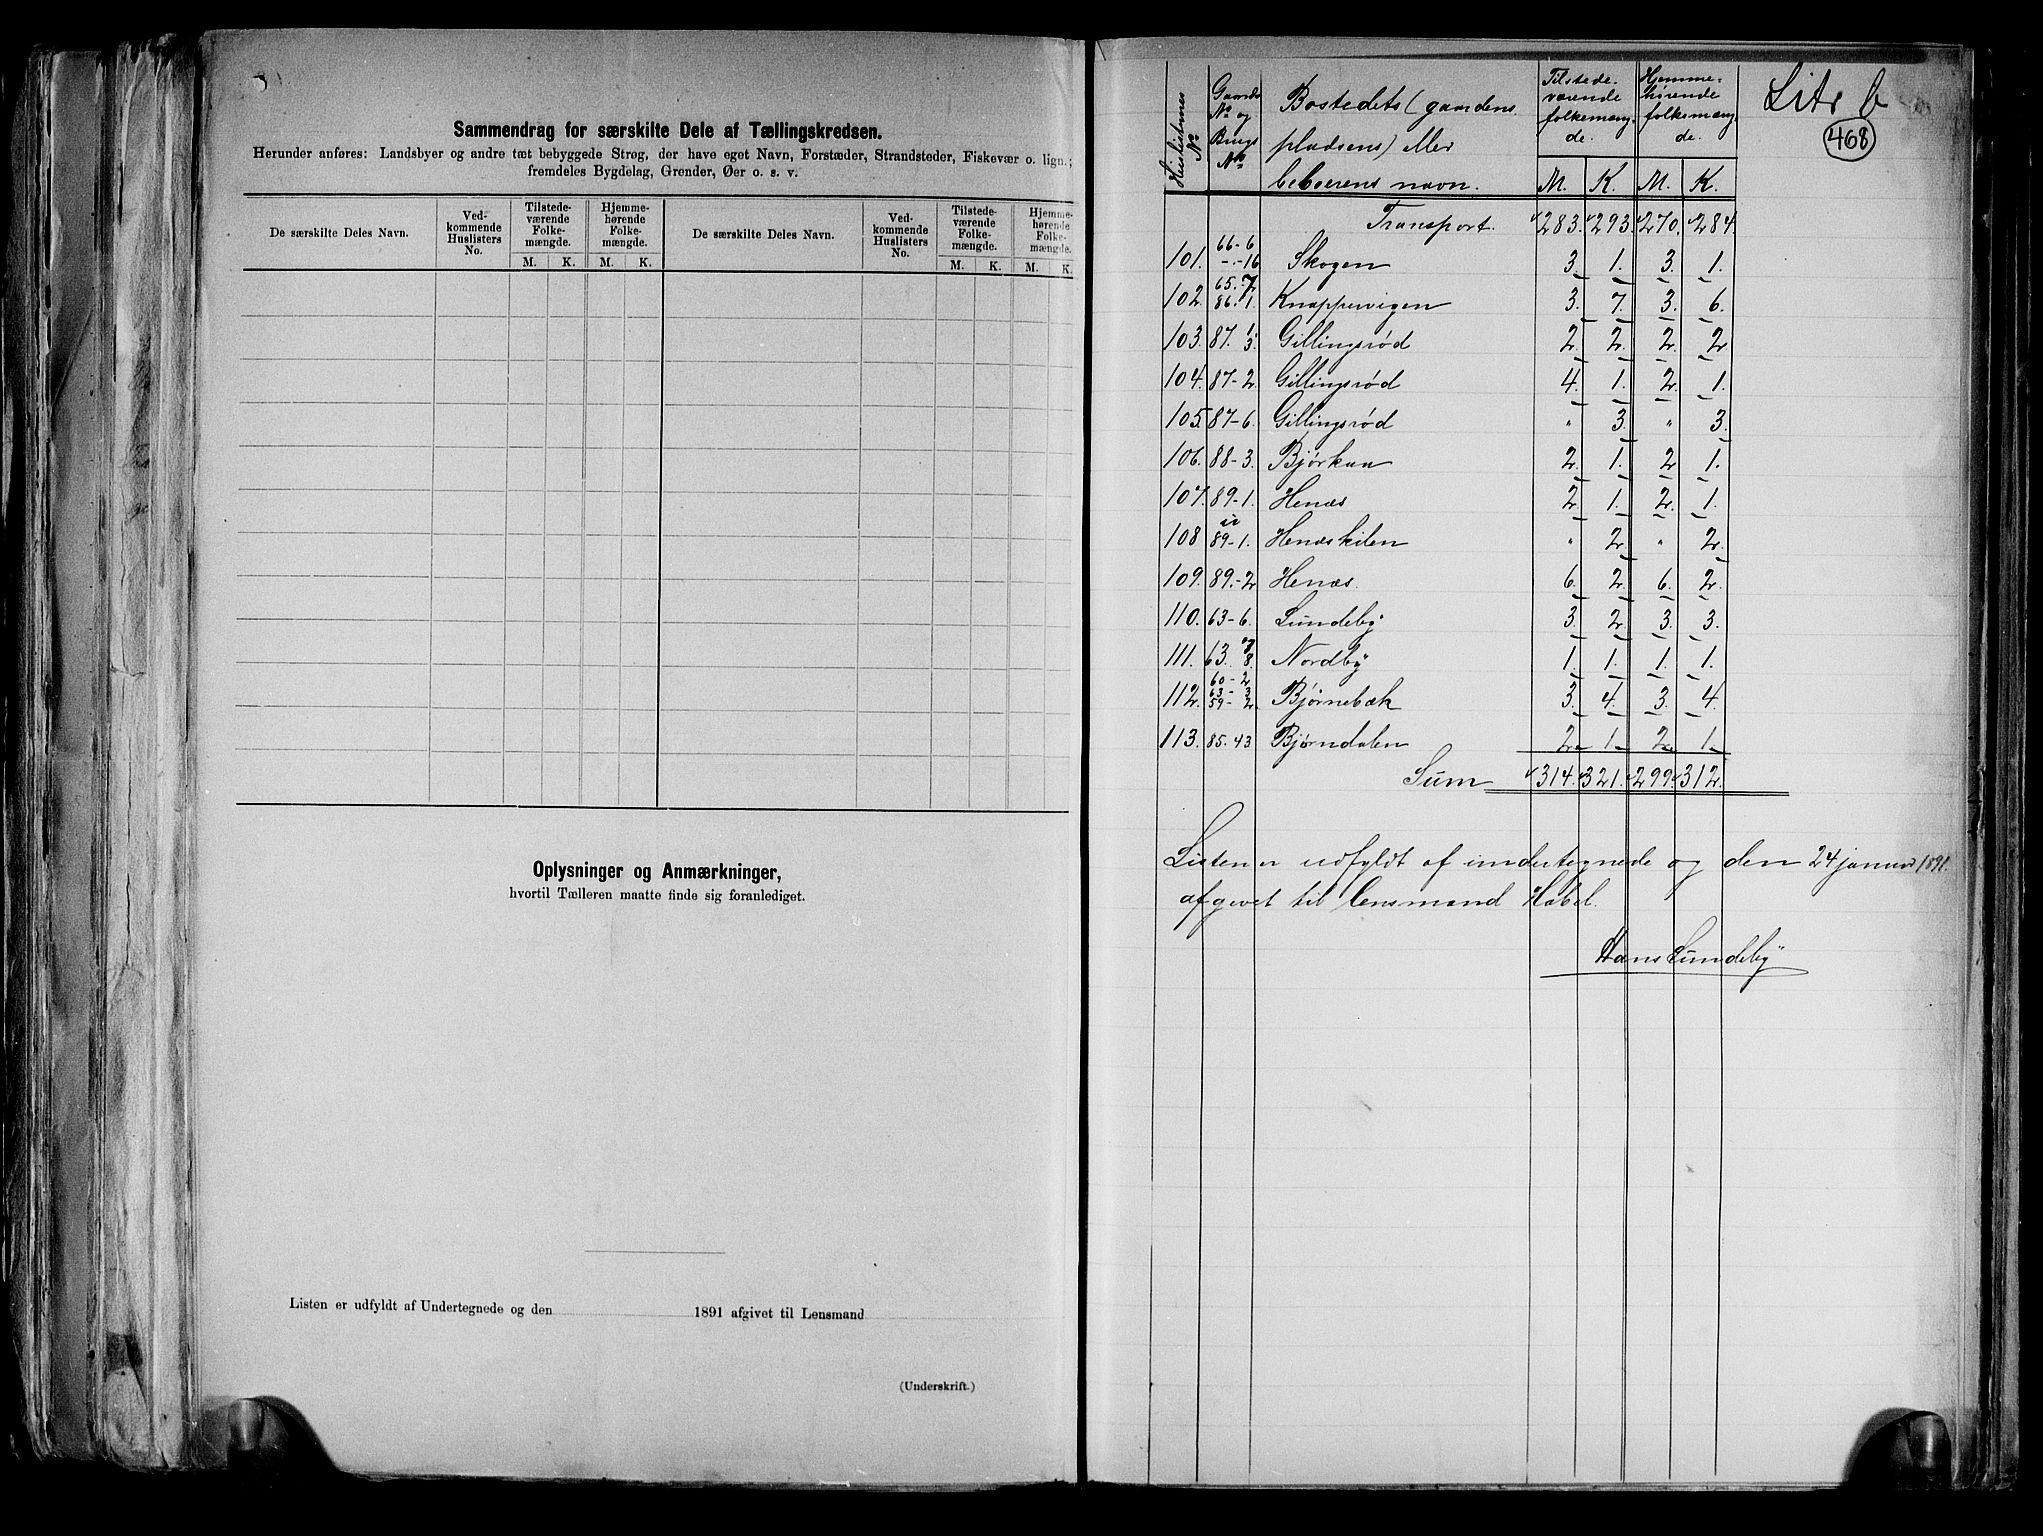 Sammendrag for særskilte Dele af Tællingskredsen.
Herunder anføres: Landsbyer og andre tæt bebyggede Strøg, der have eget Navn, Forstæder, Strandsteder, Fiskevær o. lign.;
fremdeles Bygdelag, Grender, Øer o. s. v.
De særskilte Deles Navn. Ved-kommende Huslisters No. Tilstede-værende Folke-mængde. Hjemme-hørende Folke-mængde. De særskilte Deles Navn. Ved-kommende Huslisters No. Tilstede-værende Folke-mængde. Hjemme-hørende Folke-mængde.
M. K. M. K. M. K. M. K.
Oplysninger og Anmærkninger,
hvortil Tælleren maatte finde sig foranlediget.
Listen er udfyldt af Undertegnede og den 1891 afgivet til Lensmand
(Underskrift.)
Litr b
468
Huslisternes No Gaards No og Brugs No Bostedets (gaardens pladsens) eller beboerens navn. Tilstede-værende folkemæng-de. Hjemme-hørende folkemæng-de.
M. K. M. K.
Transport. 283. 293. 270. 284.
101. 66-6 -"-16 Skogen 3. 1. 3. 1.
102. 65.-7 86.-1 Knappervigen 3. 7. 3. 6.
103. 87. 1. 3. Gillingsrød 2. 2. 2. 2
104. 87-2. Gillingsrød 4. 1. 2. 1.
105. 87-6. Gillingsrød " 3. " 3.
106. 88-3. Bjørkan 2. 1. 2. 1.
107. 89-1. Henæs 2. 1. 2. 1.
108 89-1. Henæskilen " 2. " 2.
109. 89.-2 Henæs. 6. 2. 6. 2.
110. 63-6. Lundeby 3. 2. 3. 3.
111. 63. 7 8. Nordby 1. 1. 1. 1.
112. 60-2 63-3 59-2 Bjørnebæk 3. 4. 3. 4.
113. 85.43 Bjørndalen 2. 1. 2. 1.
Sum 314. 321. 299. 312.
Listen er udfyldt af undertegnede og den 24 januar 1891.
afgivet til lensmand Habel.
Hans Lundeby